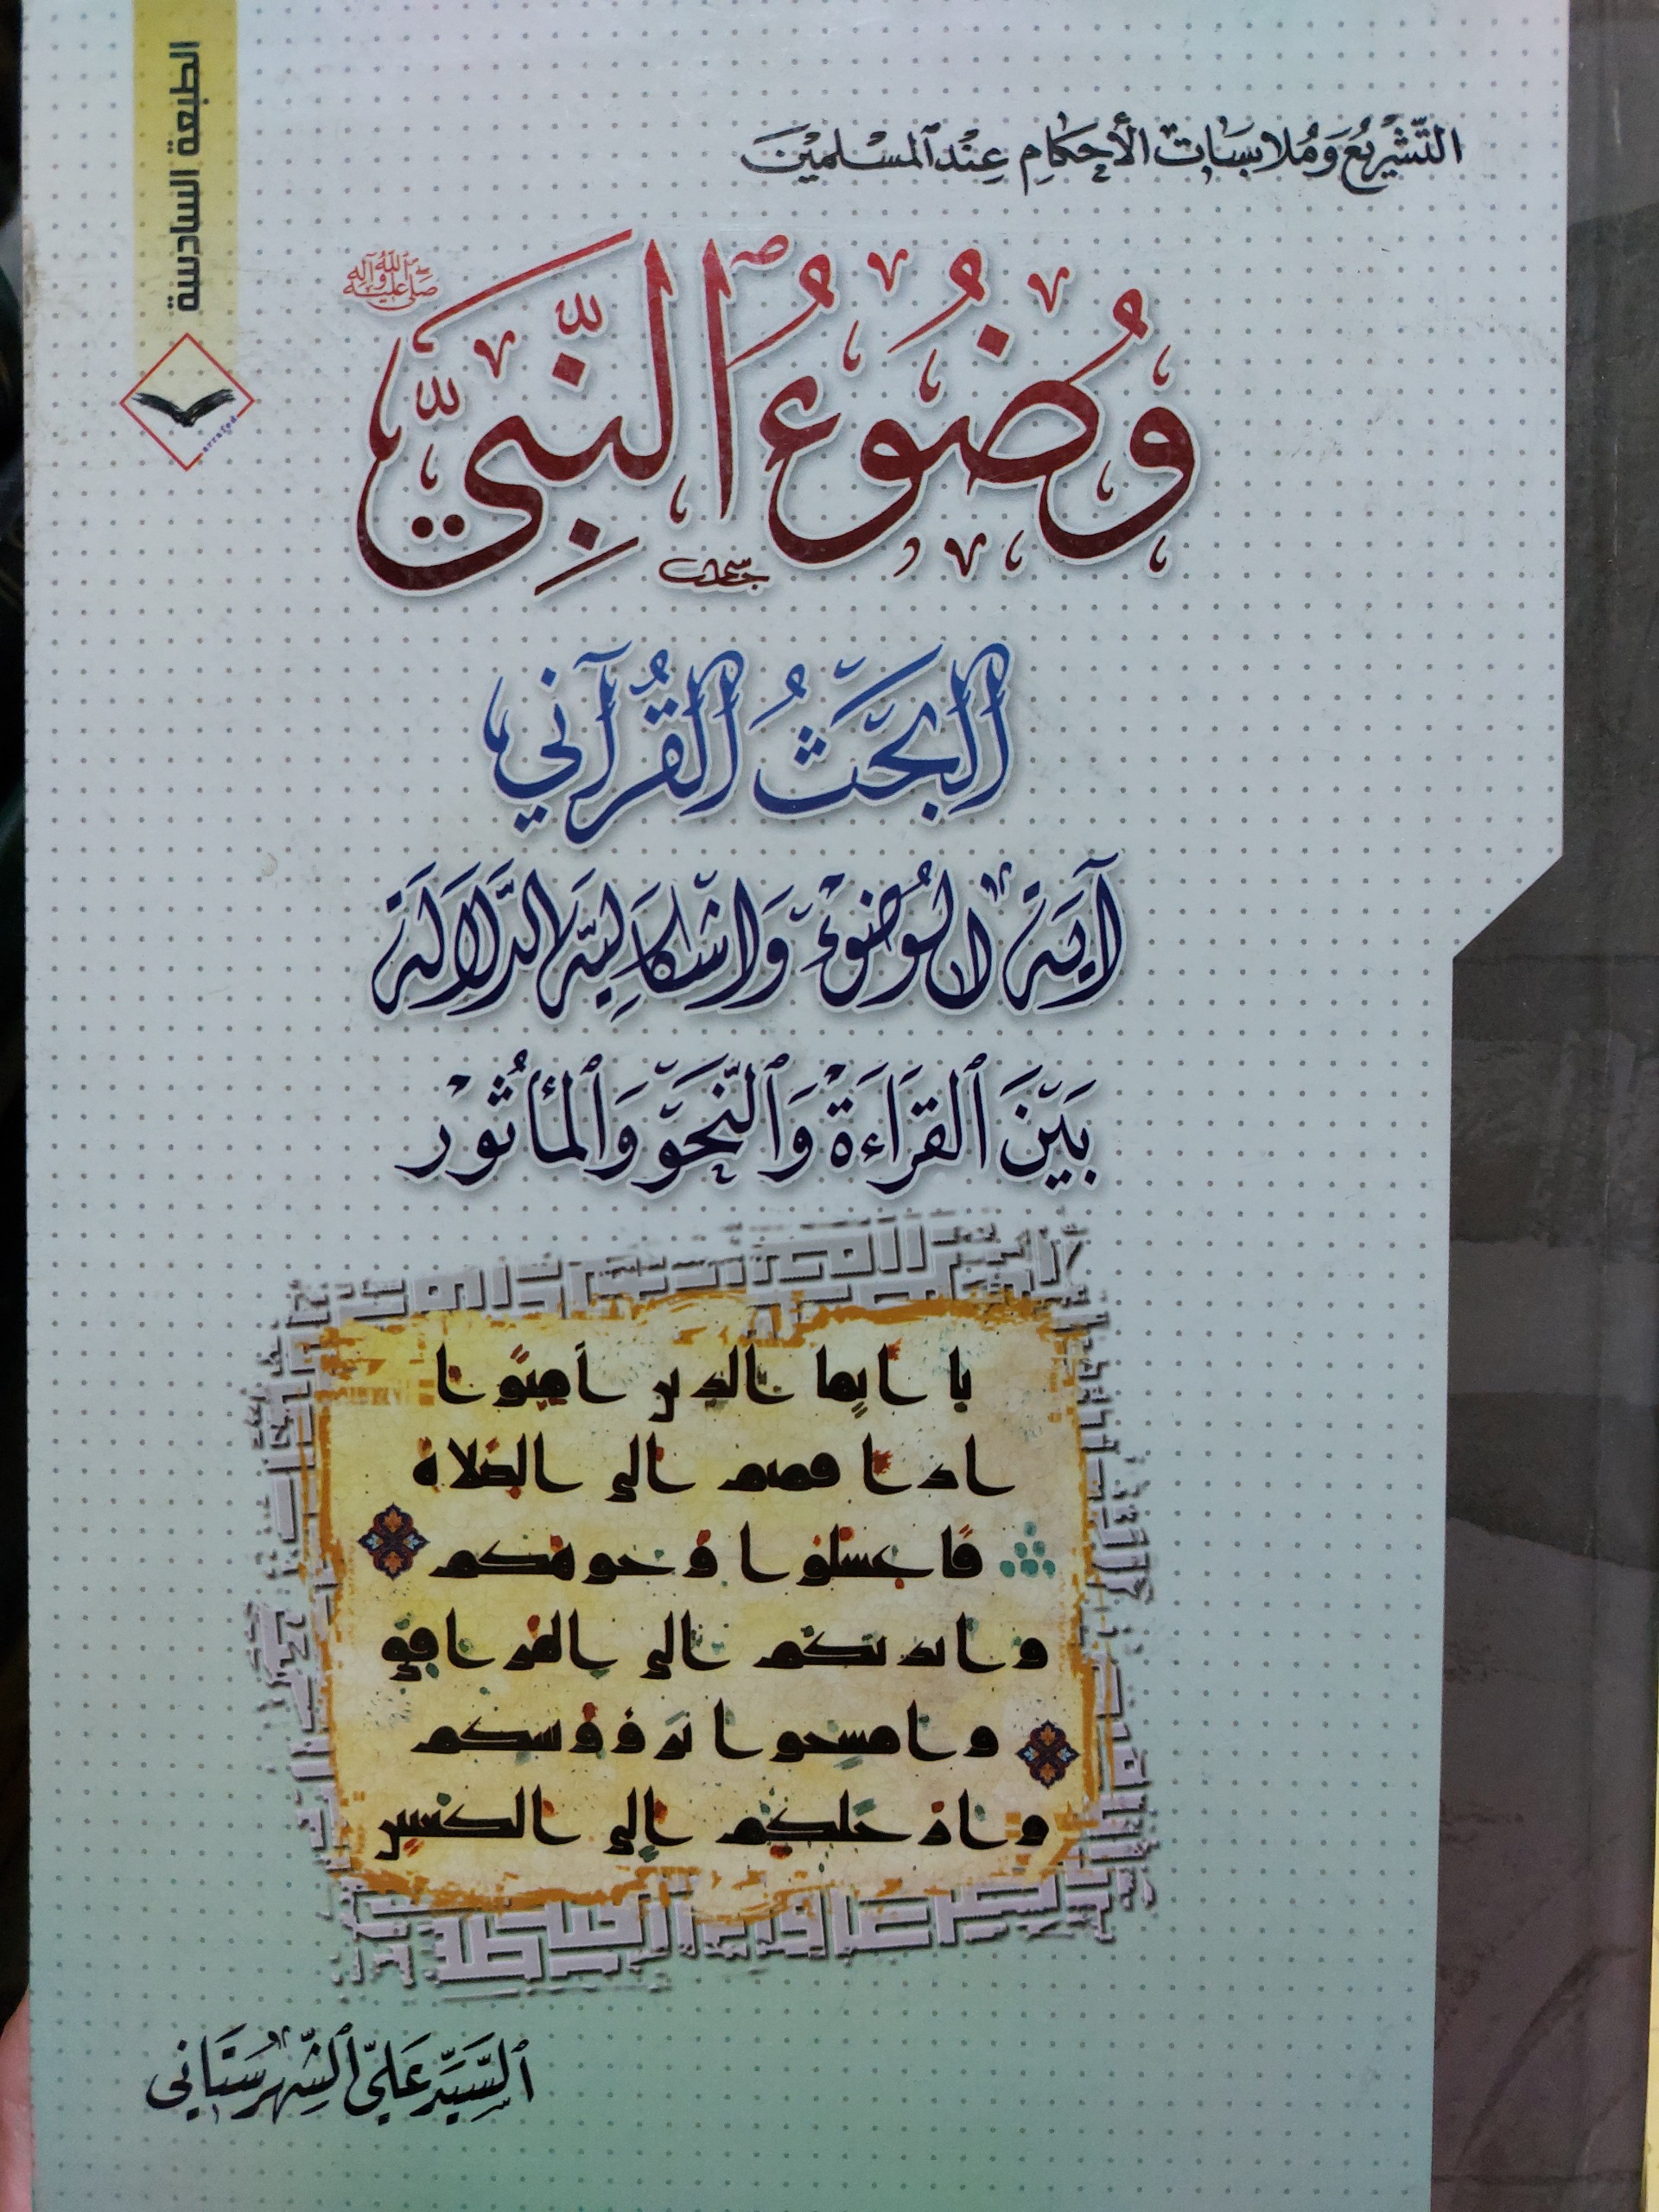 الطبعة السادسة
التَّشْرِيعُ وَمُلابَسَات الأَحكَامِ عِنْدَ ٱلمسْلمِيْنَ
صلى الله عليه وآله
وُضُوءُ ٱلنَّبِيِّ
البَحَثُ القُرآني
آيَة الوُضوُءِ وَاشكَاليَّة الدَّلَالَة
بَيْنَ ٱلقرَاءَة وَٱلنَّحَوِ وَٱلمأثُوْر
يا ايها الذين امنوا
اذا قمتم الى الصلاة
فاغسلوا وجوهكم
وايديكم الى المرافق
وامسحوا برءوسكم
وارجلكم الى الكعبين
ٱلسَّيِّد عَليّ ٱلشِّهرِسْتَاني